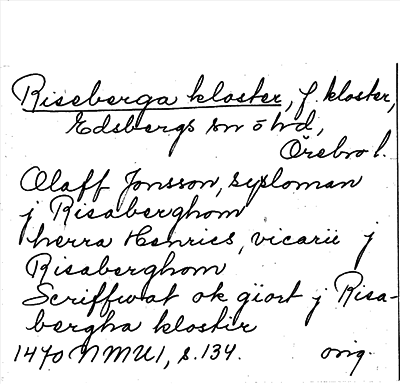 Riseberga kloster, f. kloster,
Edsbergs sn o hd,
Örebro l.
Olaff Jonsson, sysloman
j Risaberghom
herra Henrics, vicarii j
Risaberghom
Scriffwat ok giort j Risa-
bergha klostir
1470 NMU1, s. 134. orig.